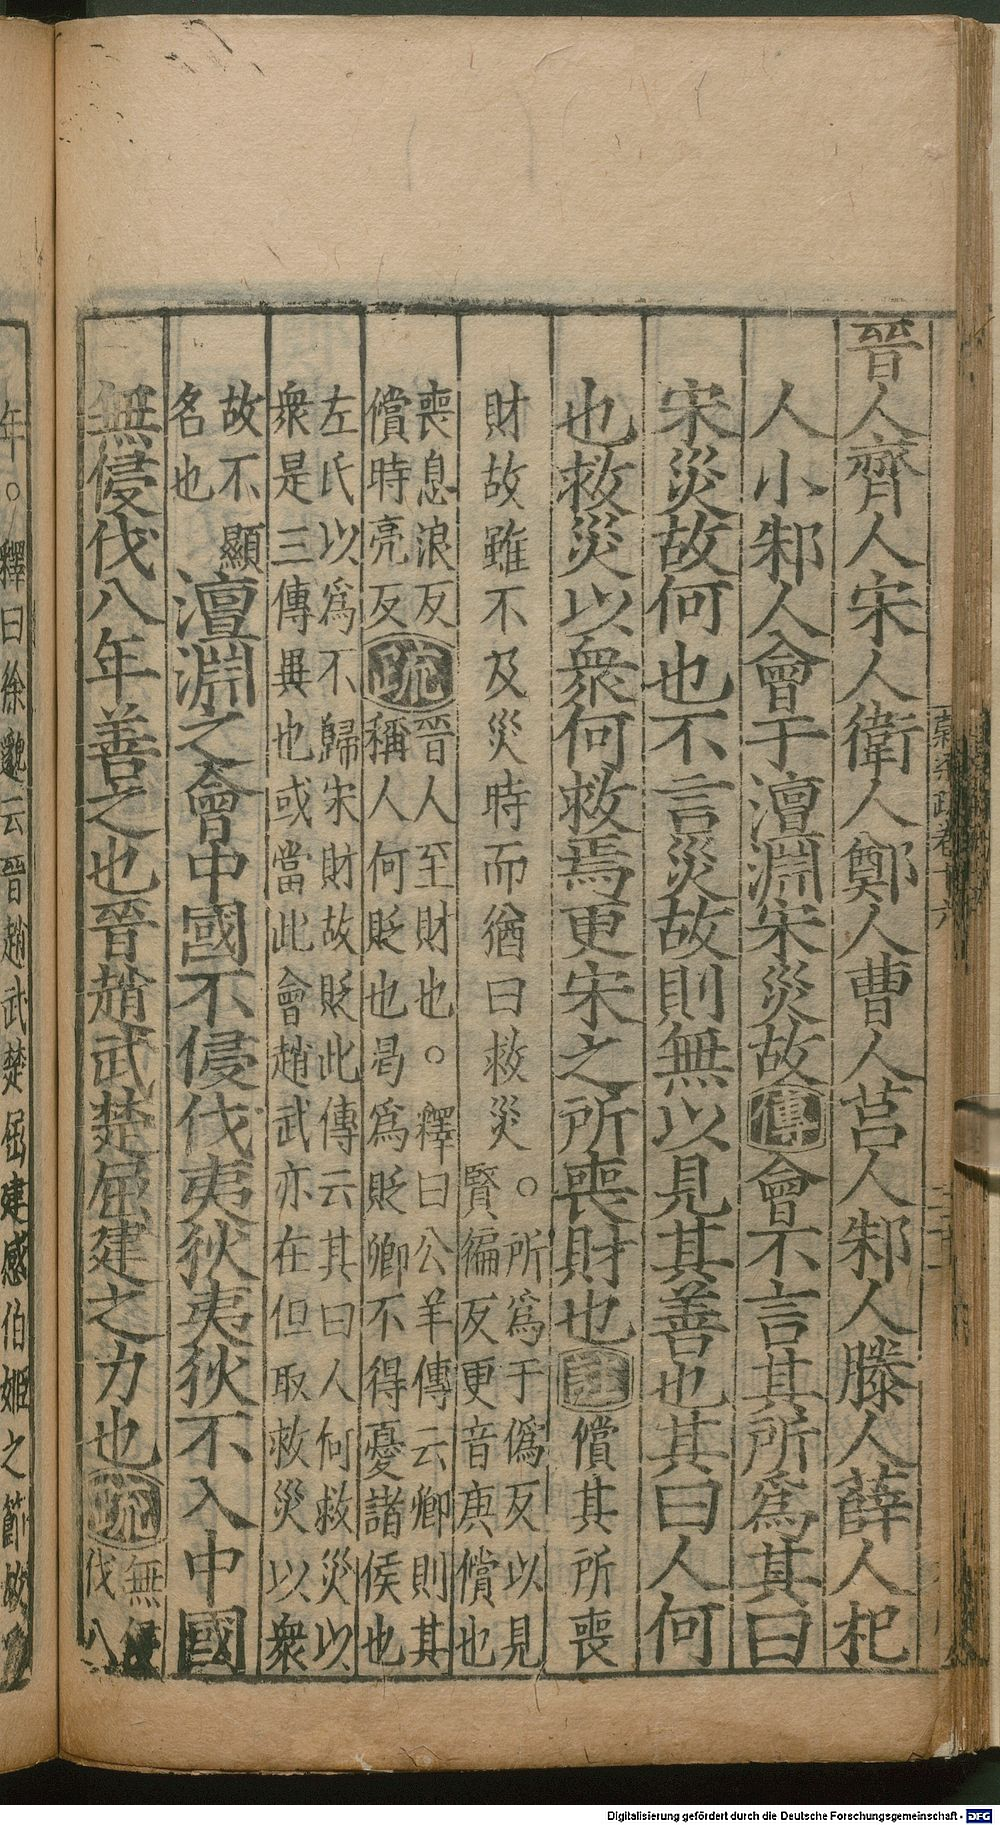 晉人齊人宋人衛人鄭人曹人莒人邾人滕人薛人杞
人小邾人會于澶淵宋災故傳會不言其所爲其曰
宋災故何也不言災故則無以見其善也其曰人何
也救災以衆何救焉更宋之所喪財也註償其所喪
財故雖不及災時而猶曰救災。所爲于僞反以見
賢徧反更音庚償也
喪息浪反
償時亮反疏晉人至財也。釋曰公羊傳云卿則其
稱人何貶也曷爲貶卿不得憂諸侯也
左氏以爲不歸宋財故貶此傳云其曰人何救災以
衆是三傳異也或當此會趙武亦在但取救災以衆
故不顯
名也
澶淵之會中國不侵伐夷狄夷狄不入中國
無侵伐八年善之也晉趙武楚屈建之力也疏無侵
伐八
年。釋曰徐邈云晉趙武楚屈建感伯姬之節故
Digitalisierung gefördert durch die Deutsche Forschungsgemeinschaft - DFG